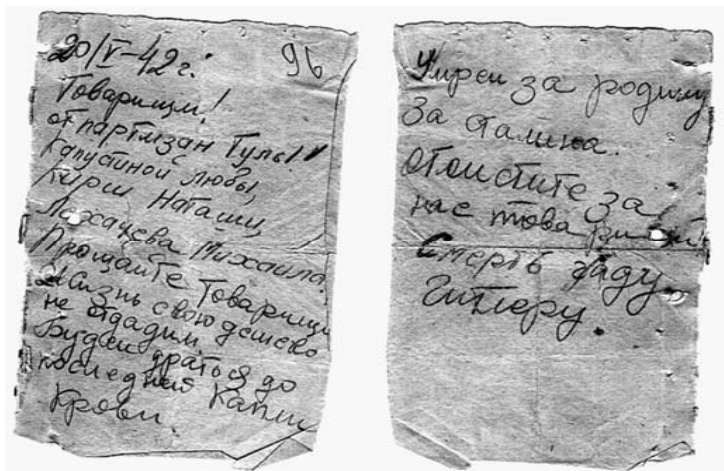 20/V-42г. 96
Товарищи!
от партизан Тулы!
Капустиной Любы,
Кирш Наташи
Лихачева Михаила.
Прощайте Товарищи
Жизнь свою дешево
не отдадим.
Будем драться до
последней капли
Крови.
Умрем за родину
За сталина.
отомстите за
нас товарищи
Смерть гаду
Гитлеру